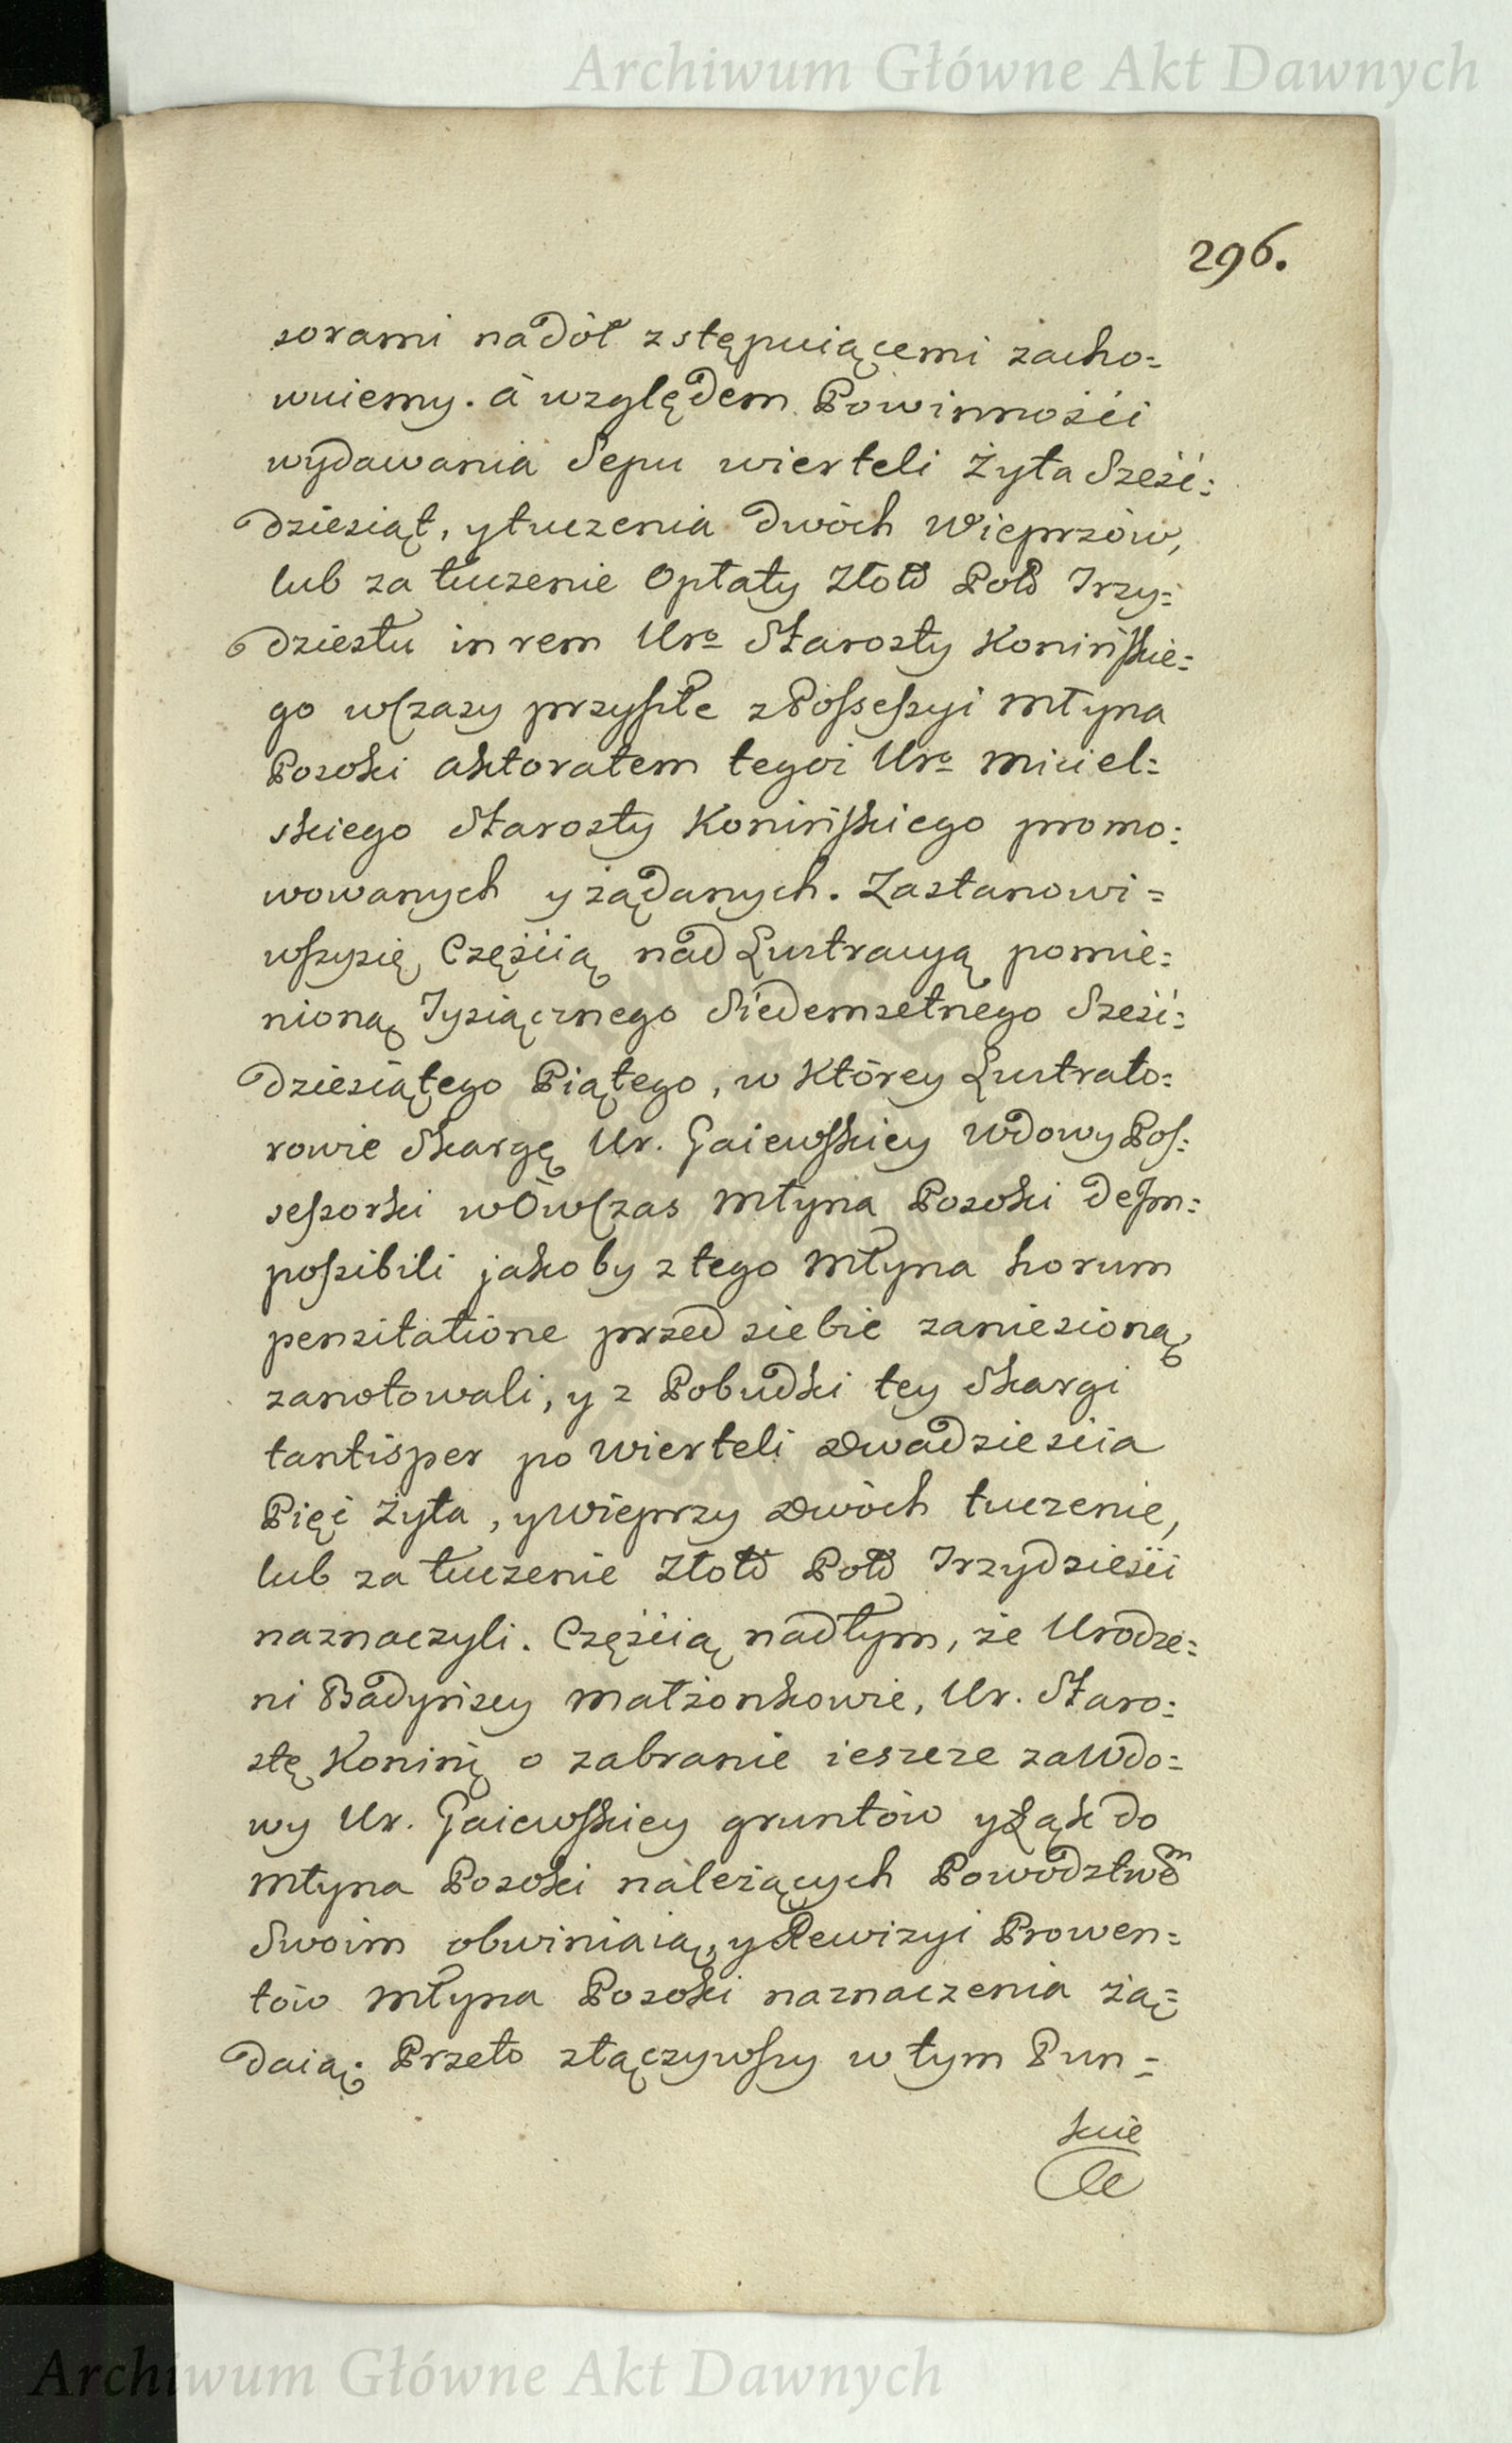 Archiwum Główne Akt Dawnych
296.
sorami nadół zstępuiącemi zacho=
wuiemy. à względem Powinności
wydawania Sepu wierteli żyta Sześć=
dziesiąt, y tuczenia dwóch Wieprzów,
lub za tuczenie Opłaty Złotd Pold Trzy=
dziestu in rem Uro Starosty Konińskie=
go wczasy przyszłe z Possessyi Młyna
Posoki aktoratem tegoż Uro Miciel=
skiego Starosty Konińskiego promo=
wowanych y żądanych. Zastanowi=
wszysię Częścią nad Lustracyą pomie=
nioną Tysiącznego Siedemsetnego Sześć=
dziesiątego Piątego, w Którey Lustrato=
rowie Skargę Ur. Gaiewskiey Wdowy Pos=
sessorki wówczas Młyna Posoki de Jm=
possibili jakoby z tego Młyna horum
pensitatione przed siebie zaniesioną
zanotowali, y z Pobudki tey Skargi
tantisper po Wierteli Dwadziescia
Pięć Żyta, y Wieprzy Dwóch tuczenie,
lub za tuczenie Złotd Pold Trzydzieści
naznaczyli. Częścią nad tym, że Urodze=
ni Badyńscy Małżonkowie, Ur. Staro=
stę Koninj o zabranie ieszcze za Wdo=
wy Ur. Gaiewskiey gruntów y Łąk do
Młyna Posoki należących Powództwem
Swoim obwiniaią, y Rewizyi Prowen=
tów Młyna Posoki naznaczenia żą=
daią: Przeto złączywszy w tym Pun=
kcie
Archiwum Główne Akt Dawnych